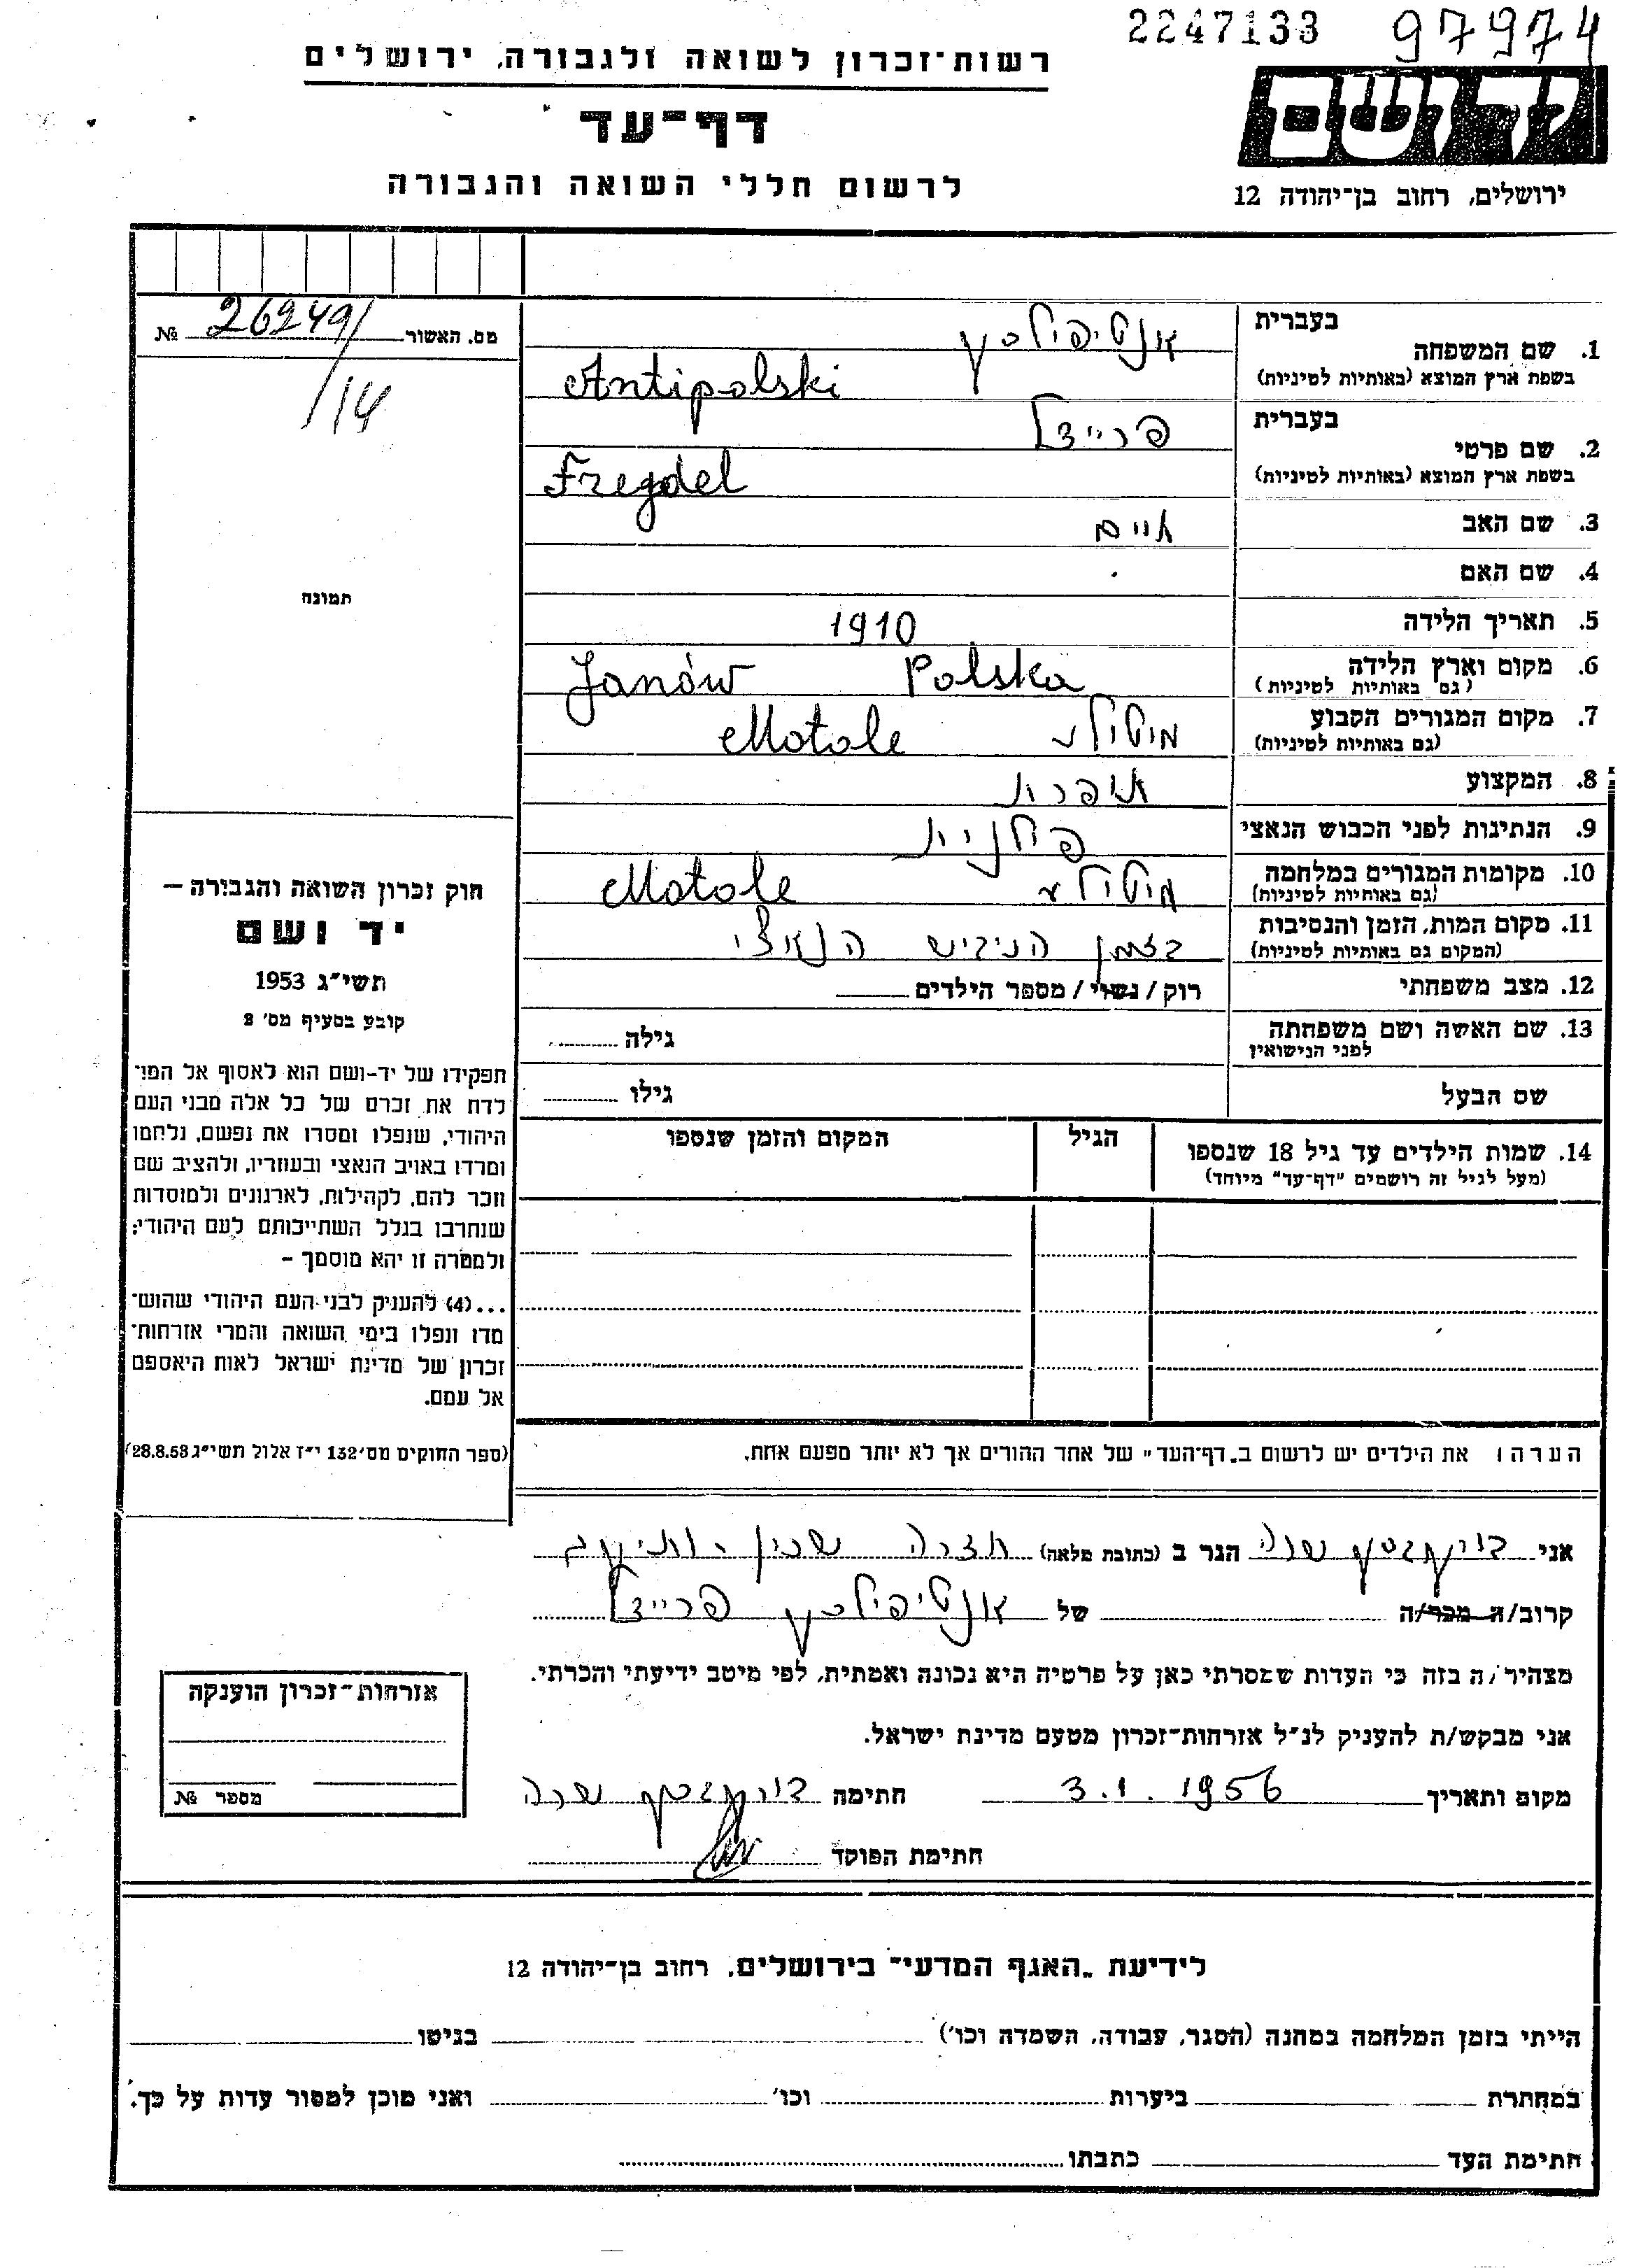 2247133 97974
רשות־זכרון לשואה ולגבורה, ירושלים
יד ושם
דף־עד
לרשום חללי השואה והגבורה
ירושלים, רחוב בן־יהודה 12
מס. האשור 26249/ №
/14
תמונה
1. שם המשפחה בעברית אנטיפולסקי
בשפת ארץ המוצא (באותיות לטיניות) Antipolski
2. שם פרטי בעברית פריידל
בשפת ארץ המוצא (באותיות לטיניות) Fregdel
3. שם האב חיים
4. שם האם
5. תאריך הלידה 1910
6. מקום וארץ הלידה Janów Polska
(גם באותיות לטיניות)
7. מקום המגורים הקבוע מוטולע Motole
(גם באותיות לטיניות)
8. המקצוע תופרת
9. הנתינות לפני הכבוש הנאצי פולנית
10. מקומות המגורים במלחמה מוטולע Motole
(גם באותיות לטיניות)
11. מקום המות, הזמן והנסיבות בזמן הכיבוש הנאצי
(המקום גם באותיות לטיניות)
12. מצב משפחתי רוק / נשוי / מספר הילדים
13. שם האשה ושם משפחתה גילה
לפני הנישואין
שם הבעל גילו
14. שמות הילדים עד גיל 18 שנספו הגיל המקום והזמן שנספו
(מעל לגיל זה רושמים "דף־עד" מיוחד)
חוק זכרון השואה והגבורה —
יד ושם
תשי"ג 1953
קובע בסעיף מס' 2
תפקידו של יד-ושם הוא לאסוף אל המו־
לדת את זכרם של כל אלה מבני העם
היהודי, שנפלו ומסרו את נפשם, נלחמו
ומרדו באויב הנאצי ובעוזריו, ולהציב שם
וזכר להם, לקהילות, לארגונים ולמוסדות
שנחרבו בגלל השתייכותם לעם היהודי;
ולמטרה זו יהא מוסמך –
...(4) להעניק לבני העם היהודי שהוש־
מדו ונפלו בימי השואה והמרי אזרחות־
זכרון של מדינת ישראל לאות היאספם
אל עמם.
(ספר החוקים מס' 132 י"ז אלול תשי"ג 28.8.53)
הערה: את הילדים יש לרשום ב„דף־העד" של אחד ההורים אך לא יותר מפעם אחת.
אני שרה הגר ב (כתובת מלאה) חדרה שכון
קרוב/ה מכר/ה של אנטיפולסקי פריידל
מצהיר/ה בזה כי העדות שמסרתי כאן על פרטיה היא נכונה ואמתית, לפי מיטב ידיעתי והכרתי.
אני מבקש/ת להעניק לנ"ל אזרחות־זכרון מטעם מדינת ישראל.
מקום ותאריך 3.1.1956 חתימה שרה
חתימת הפוקד
אזרחות־זכרון הוענקה
מספר №
לידיעת „האגף המדעי" בירושלים, רחוב בן־יהודה 12
הייתי בזמן המלחמה במחנה (הסגר, עבודה, השמדה וכו') בגיטו
במחתרת ביערות וכו' ואני מוכן למסור עדות על כך.
חתימת העד כתבתו